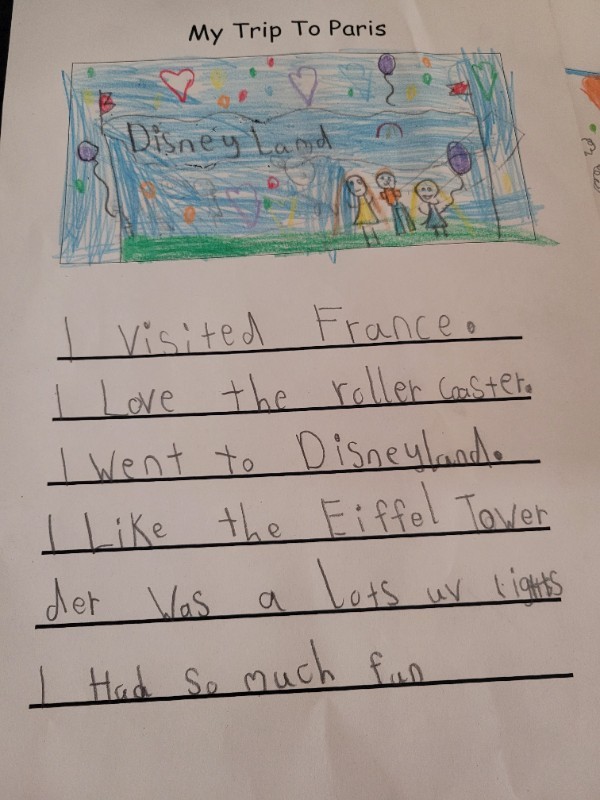 My Trip To Paris
Disney Land
I visited France.
I Love the roller Coaster.
I Went to Disneyland.
I Like the Eiffel Tower
der Was a Lots uv lights
I Had So much fun